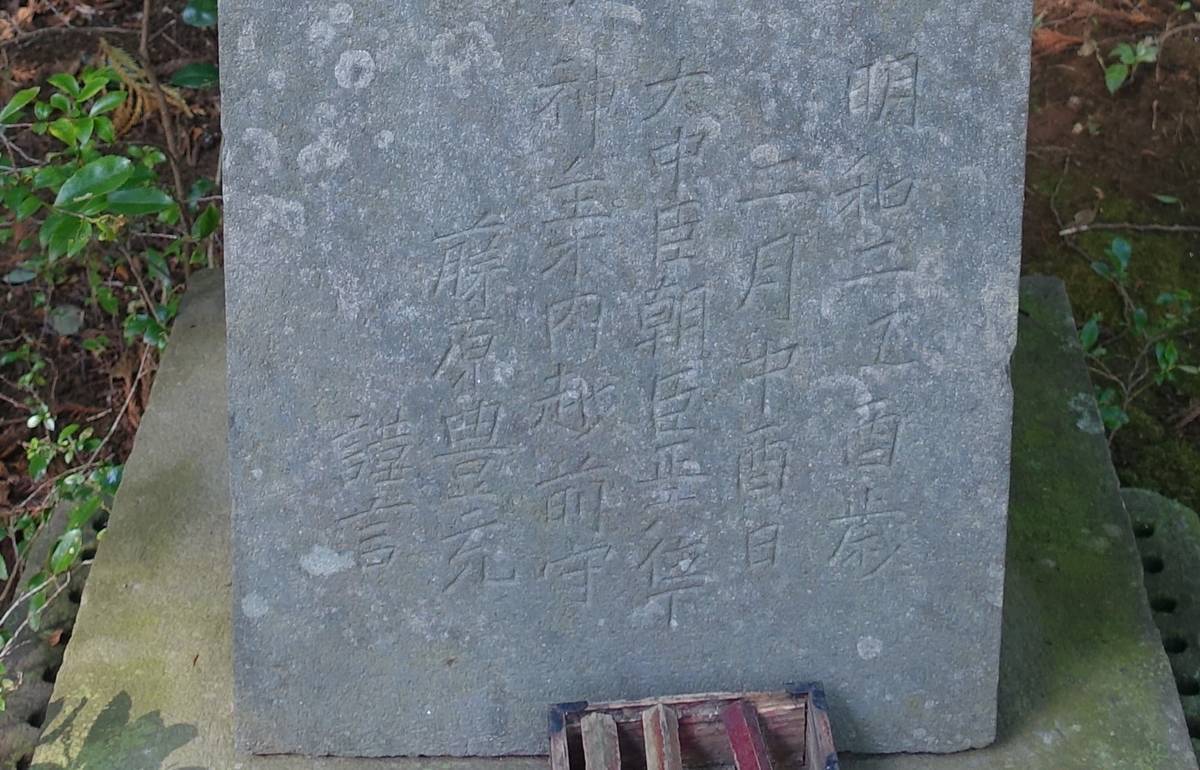 明和二乙酉歳
三月中酉日
大中臣朝臣
神主木内越前守
藤原豊元
謹言